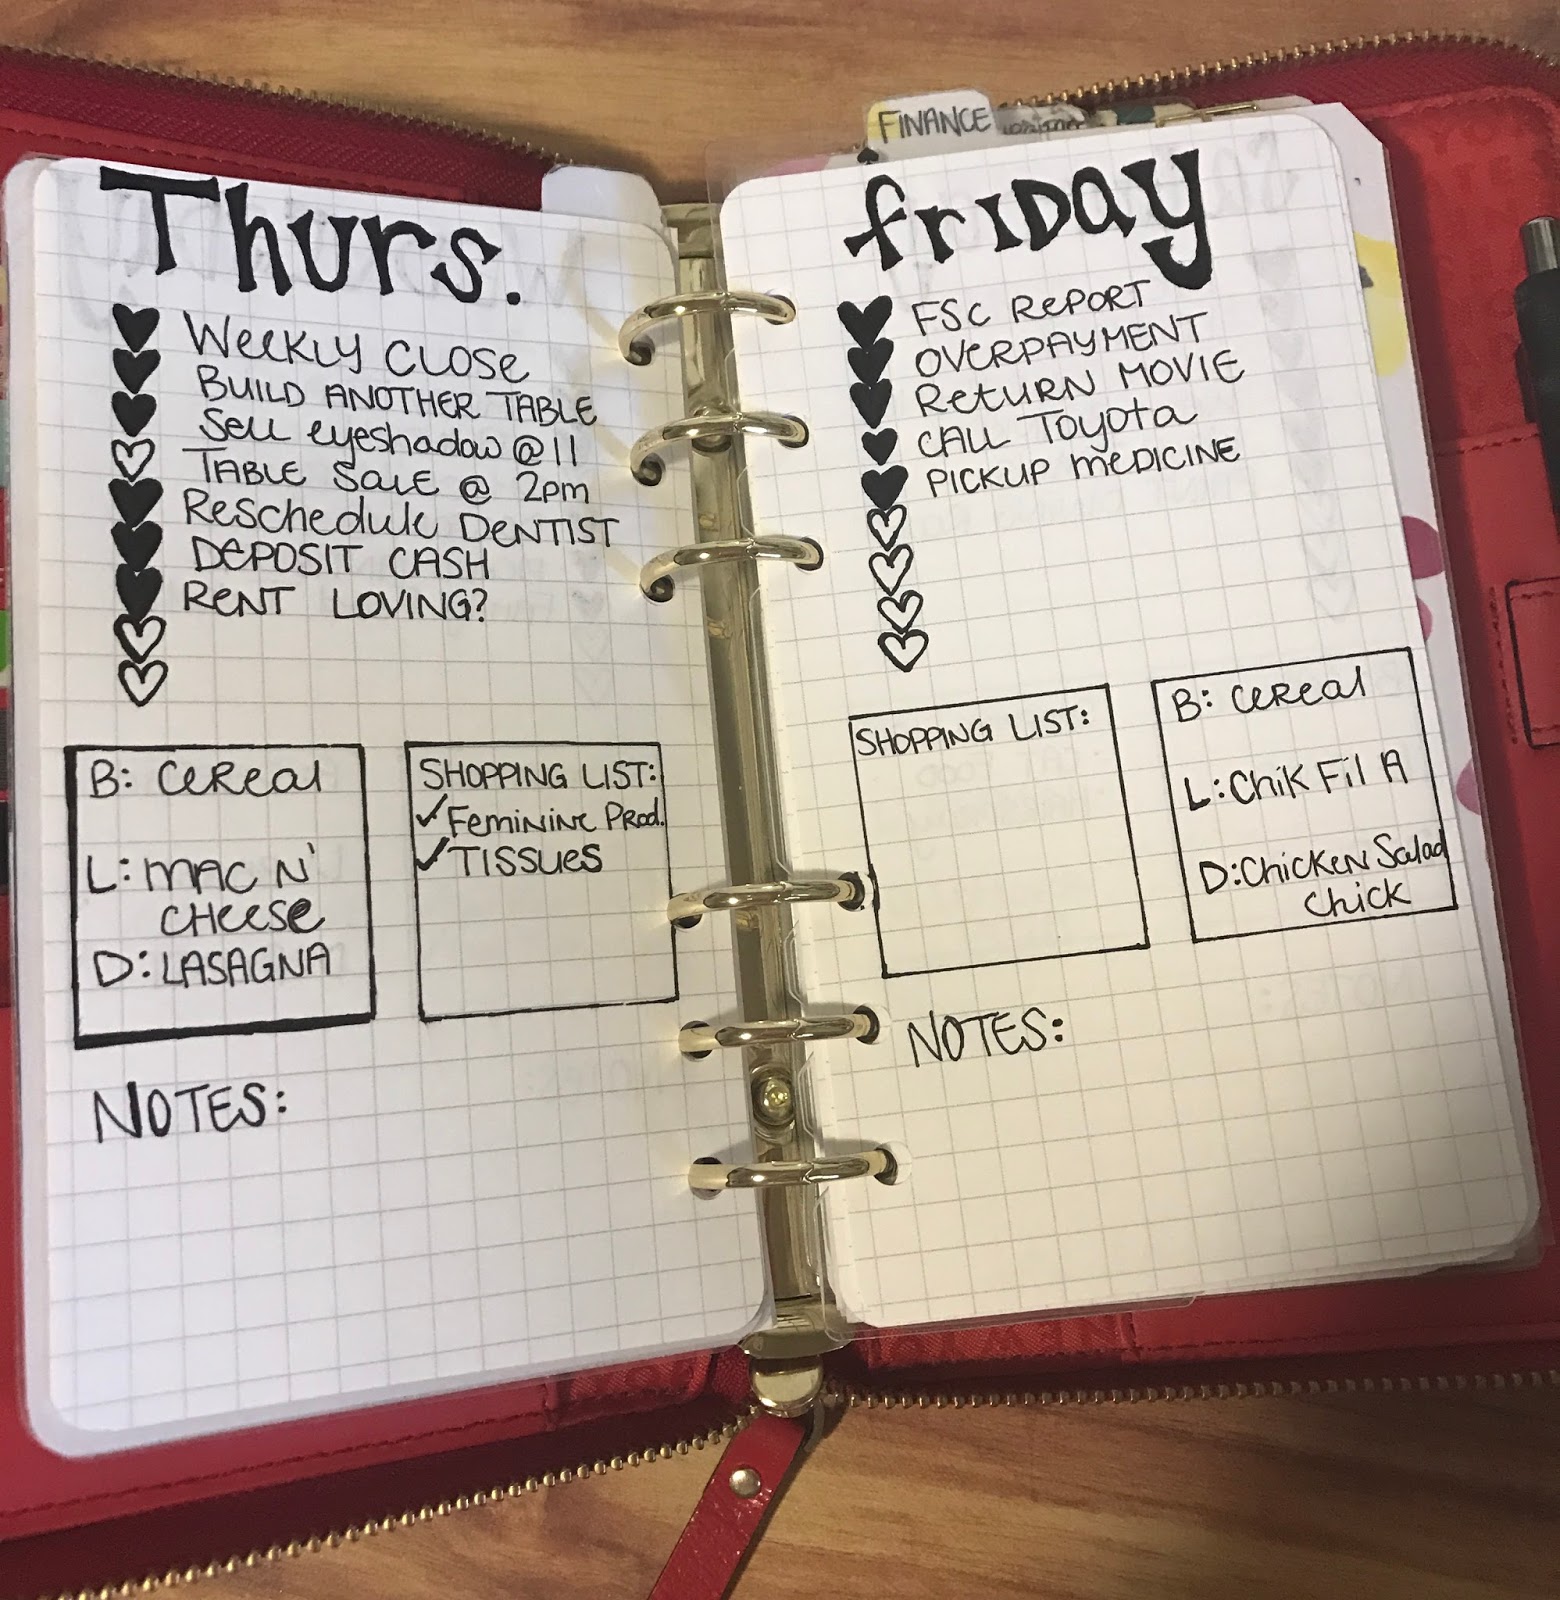 Thurs.
Weekly Close
Build Another Table
Sell eyeshadow @ 11
Table Sale @ 2pm
Reschedule Dentist
Deposit Cash
Rent Loving?
B: Cereal
L: Mac N'
Cheese
D: Lasagna
SHOPPING LIST:
✓ Feminine Prod.
✓ Tissues
NOTES:
FINANCE
friday
FSC Report
Overpayment
Return Movie
Call Toyota
Pickup medicine
SHOPPING LIST:
B: Cereal
L: Chik Fil A
D: Chicken Salad
Chick
NOTES: